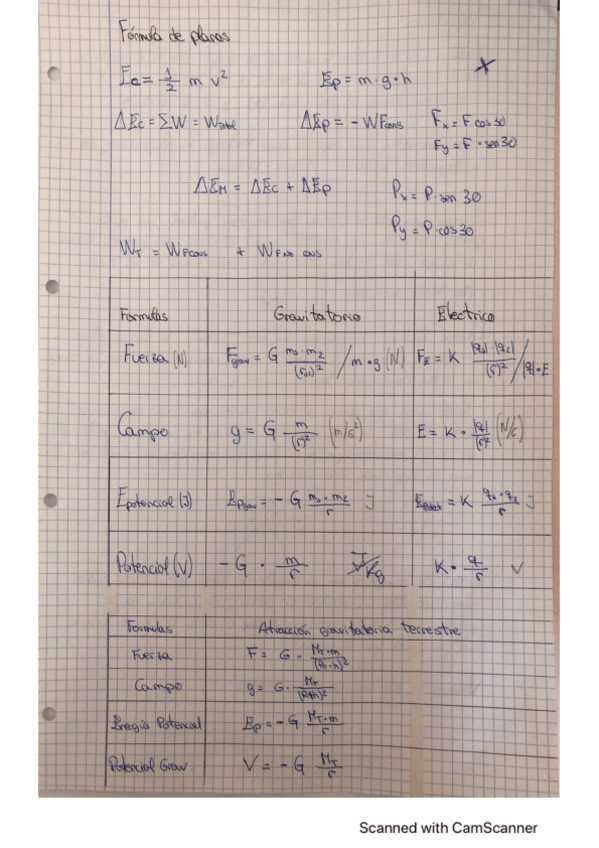 Fórmula de planos
Ec = 1/2 m v²    Ep = m·g·h    x
ΔEc = ΣW = Wtotal    ΔEp = - WFcons    Fx = F cos30
Fy = F · sen30
ΔEM = ΔEc + ΔEp    Px = P·sen 30
Py = P·cos30
WT = WFcons + WFno cons
Formulas    Gravitatorio    Electrico
Fuerza (N)    Fgrav = G m1·m2/(r)² / m·g (N)    FE = K |q1|·|q2|/(r)² / |q|·E
Campo    g = G m/(r)² (m/s²)    E = K · |q|/(r)² (N/C)
Epotencial (J)    Epgrav = - G m1·m2/r J    Epelect = K q1·q2/r J
Potencial (V)    - G · m/r J/Kg    K · q/r V
Formulas    Atracción gravitatoria terrestre
Fuerza    F = G · MT·m/(RT+h)²
Campo    g = G · MT/(R+h)²
Energia Potencial    Ep = - G MT·m/r
Potencial Grav.    V = - G MT/r
Scanned with CamScanner